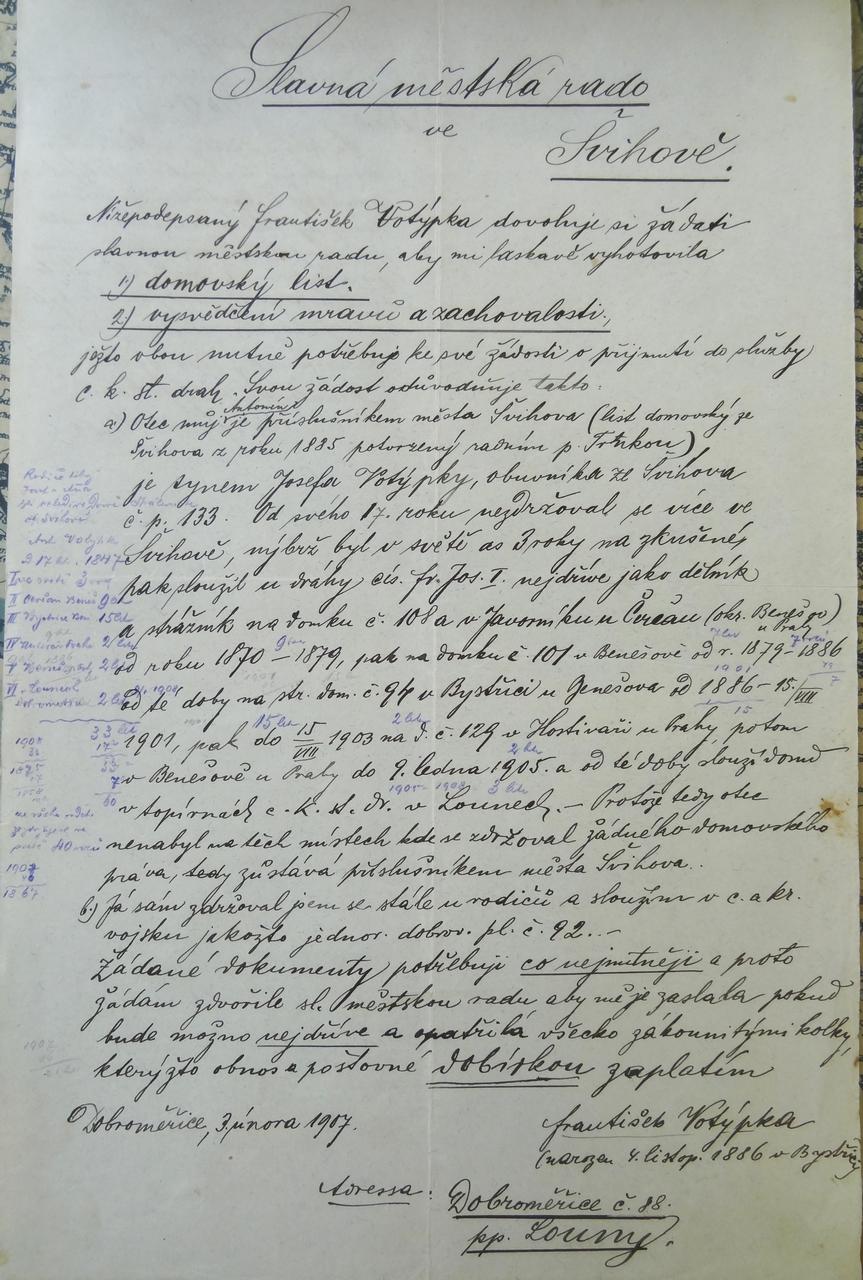 Slavná městská rado
ve
Švihově.
Nížepodepsaný František Votýpka dovoluje si žádati
slavnou městskou radu, aby mi laskavě vyhotovila
1) domovský list.
2) vysvědčení mravů a zachovalosti.,
ježto obou nutně potřebuji ke své žádosti o přijmutí do služby
c. k. st. drah. Svou žádost odůvodňuje takto:
a) Otec můj Antonín je příslušníkem města Švihova (list domovský ze
Švihova z roku 1885 potvrzený radním p. Trnkou)
je synem Josefa Votýpky, obuvníka ze Švihova
č. p. 133. Od svého 17. roku nezdržoval se více ve
Švihově, nýbrž byl v světě as 3 roky na zkušené,
pak sloužil u dráhy cís. Fr. Jos. I. nejdříve jako dělník
a strážník na domku č. 108a v Javorníku u Čerčan (okr. Benešov)
u Prahy
od roku 1870 – 1879, pak na domku č. 101 v Benešově od r. 1879 – 1886
od té doby na str. dom. č. 94 v Bystřici u Benešova od 1886 – 15./VIII
1901, pak do 15/VIII 1903 na d. č. 129 v Hostivaři u Prahy, potom
v Benešově u Prahy do 9. ledna 1905. a od té doby slouží
v topírnách c. k. st. dr. v Lounech. – Protože tedy otec
nenabyl na těch místech kde se zdržoval žádného domovského
práva, tedy zůstává příslušníkem města Švihova..
b.) Já sám zdržoval jsem se stále u rodičů a sloužím v c. a kr.
vojsku jakožto jednor. dobrov. pl. č. 92. –
Žádané dokumenty potřebuji co nejnutněji a proto
žádám zdvořile sl. městskou radu aby mě je zaslala pokud
bude možno nejdříve a opatřila všecko zákonnitými kolky,
kterýžto obnos a poštovné dobírkou zaplatím
Dobroměřice, 3. února 1907.
František Votýpka
(narozen 4. listop. 1886 v Bystřici
Adressa:
Dobroměřice č. 88.
pp. Louny.
Ant. Votýpka
1847
3 roky
9 let
15 let
2 let
2 let
33 let
17
7
60
40 roků
1907
1867